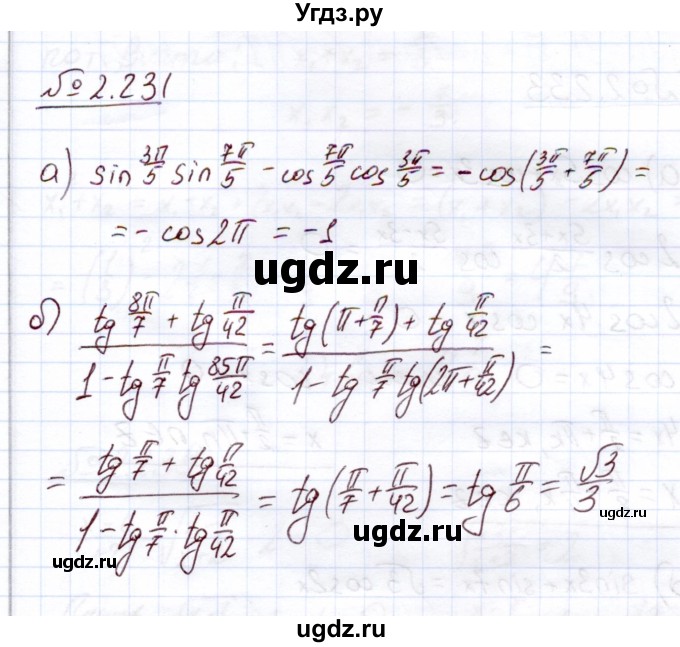 Угдз.ру
№2.231
а) sin 3π/5 sin 7π/5 - cos 7π/5 cos 3π/5 = - cos(3π/5 + 7π/5) =
= - cos2π = -1
ugdz.ru
б) (tg 8π/7 + tg π/42)/(1 - tg π/7 tg 85π/42) = (tg(π + π/7) + tg π/42)/(1 - tg π/7 tg(2π + π/42)) =
= (tg π/7 + tg π/42)/(1 - tg π/7 · tg π/42) = tg(π/7 + π/42) = tg π/6 = √3/3
ugdz.ru
ugdz.ru
ugdz.ru
ugdz.ru